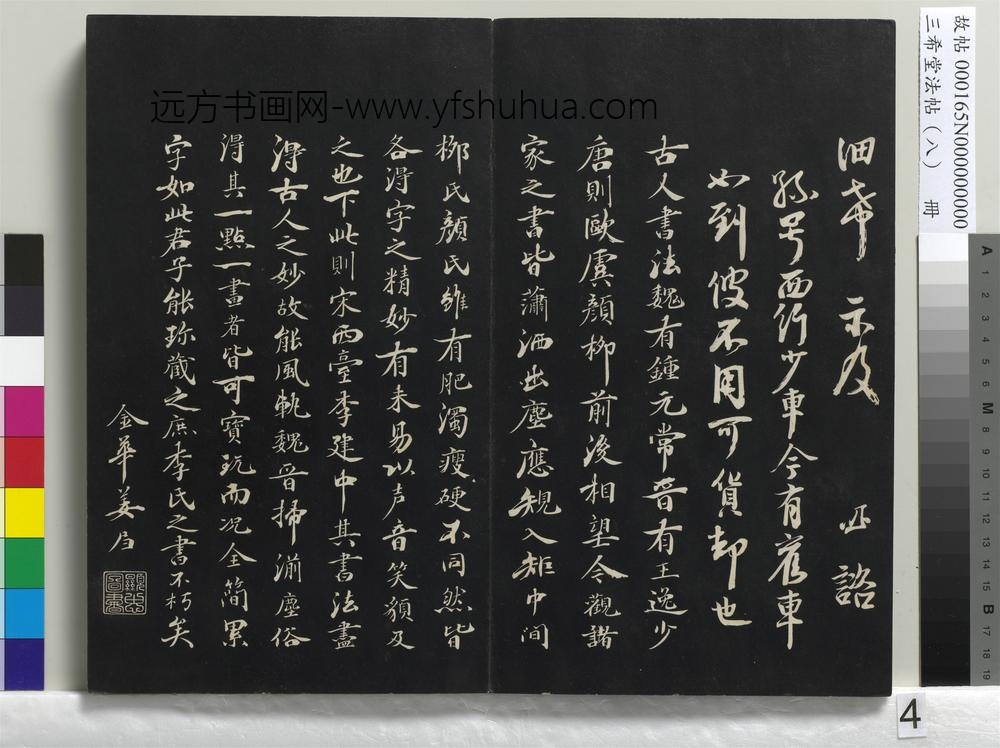 远方书画网-www.yfshuhua.com
故帖 000165N000000000
三希堂法帖（八） 冊
示及 諮
孫号西行少車今有舊車
如到彼不用可貨却也
古人書法魏有鍾元常晉有王逸少
唐則歐虞顏柳前後相望今觀諸
家之書皆蕭洒出塵應規入矩中間
柳氏顏氏雖有肥濁瘦硬不同然皆
各得字之精妙有未易以声音笑貌及
之也下此則宋西臺李建中其書法盡
得古人之妙故能風軌魏晉掃湔塵俗
得其一點一畫者皆可寶玩而况全簡累
字如此君子能珍藏之庶李氏之書不朽矣
金華姜
4